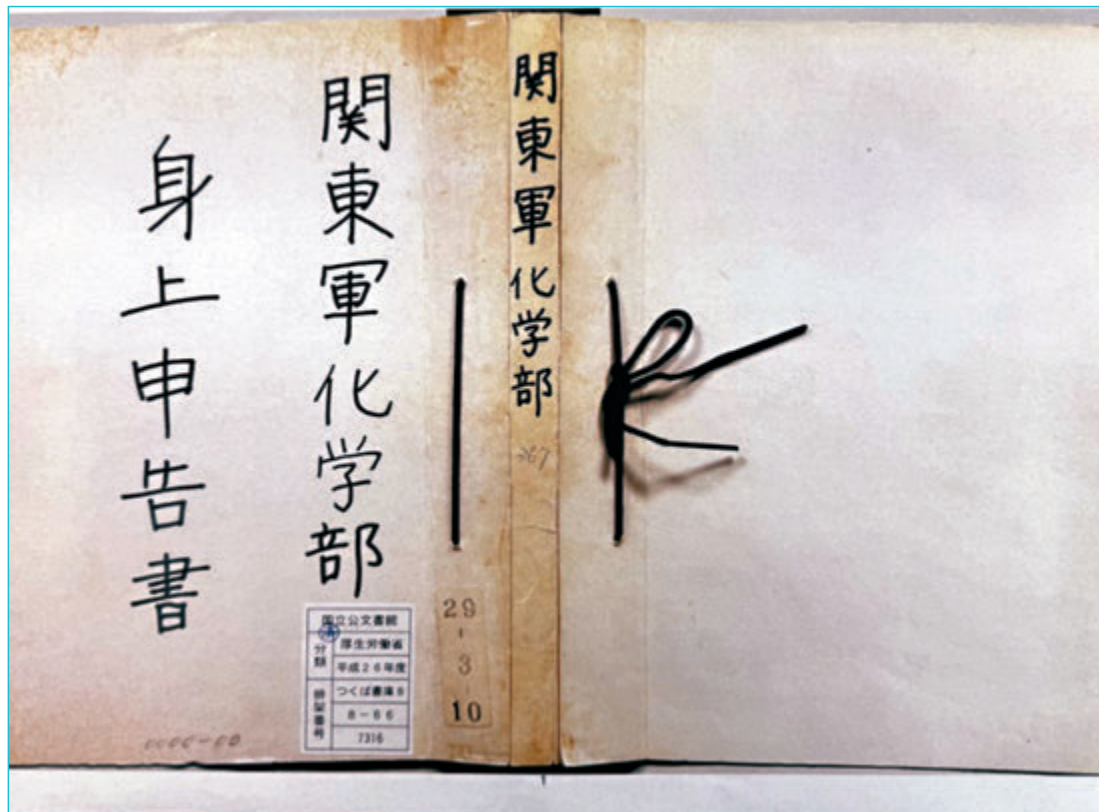 関東軍化学部
身上申告書
関東軍化学部
267
29
-
3
-
10
国立公文書館
分類
厚生労働省
平成26年度
排架番号
つくば書庫8
8-66
7316